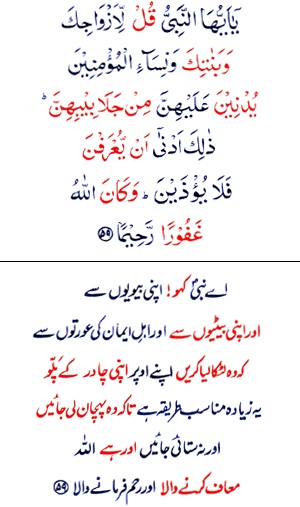 يٰۤاَيُّهَا النَّبِيُّ قُلْ لِّاَزْوَاجِكَ
وَبَنٰتِكَ وَنِسَآءِ الْمُؤْمِنِيْنَ
يُدْنِيْنَ عَلَيْهِنَّ مِنْ جَلَابِيْبِهِنَّ ؕ
ذٰلِكَ اَدْنٰۤى اَنْ يُّعْرَفْنَ
فَلَا يُؤْذَيْنَ ؕ وَكَانَ اللّٰهُ
غَفُوْرًا رَّحِيْمًا ۝۵۹
اے نبیؐ کہو! اپنی بیویوں سے
اور اپنی بیٹیوں سے اور اہلِ ایمان کی عورتوں سے
کہ وہ لٹکا لیا کریں اپنے اوپر اپنی چادر کے پلّو
یہ زیادہ مناسب طریقہ ہے تاکہ وہ پہچان لی جائیں
اور نہ ستائی جائیں اور ہے اللہ
معاف کرنے والا اور رحم فرمانے والا ۝۵۹